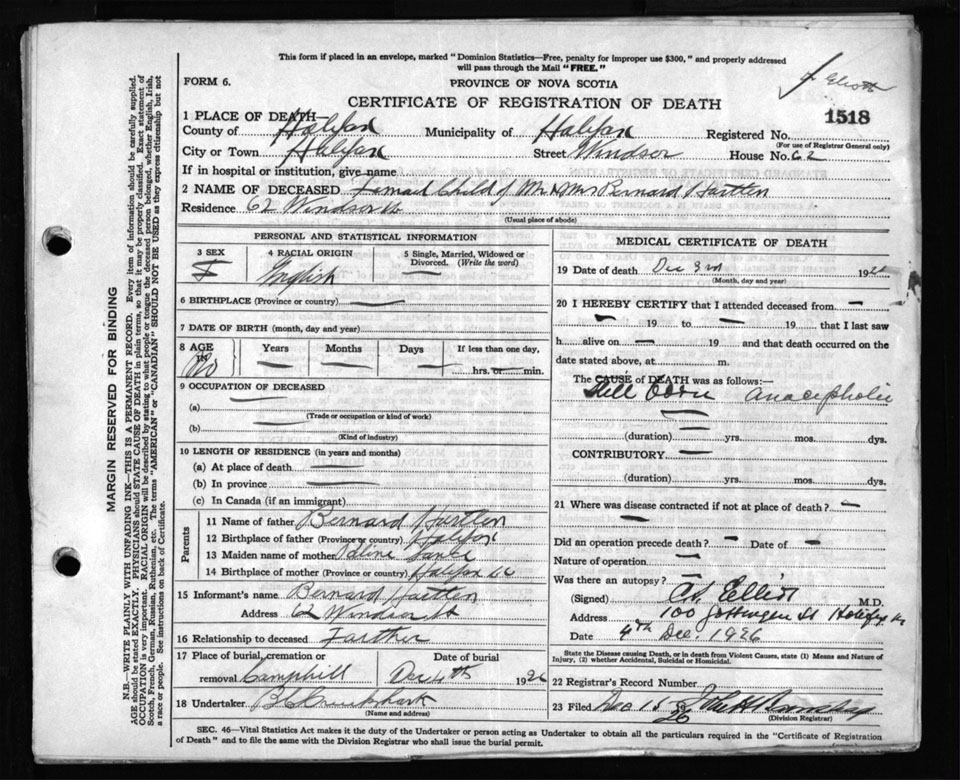 This form if placed in an envelope, marked "Dominion Statistics—Free, penalty for improper use $300," and properly addressed
will pass through the Mail "FREE."
FORM 6.
PROVINCE OF NOVA SCOTIA
Elliott
CERTIFICATE OF REGISTRATION OF DEATH
1518
1 PLACE OF DEATH—
County of Halifax Municipality of Halifax Registered No.
(For use of Registrar General only)
City or Town Halifax Street Windsor House No. 62
If in hospital or institution, give name
2 NAME OF DECEASED Child of Mr & Mrs Bernard Hartlen
Residence 62 Windsor St
(Usual place of abode)
PERSONAL AND STATISTICAL INFORMATION
3 SEX F
4 RACIAL ORIGIN English
5 Single, Married, Widowed or Divorced. (Write the word) —
6 BIRTHPLACE (Province or country) —
7 DATE OF BIRTH (month, day and year)
8 AGE Years Months Days If less than one day,
— — — hrs. or min.
9 OCCUPATION OF DECEASED
(a) —
(Trade or occupation or kind of work)
(b) —
(Kind of industry)
10 LENGTH OF RESIDENCE (in years and months)
(a) At place of death —
(b) In province —
(c) In Canada (if an immigrant)
Parents
11 Name of father Bernard Hartlen
12 Birthplace of father (Province or country) Halifax
13 Maiden name of mother
14 Birthplace of mother (Province or country) Halifax
15 Informant's name Bernard Hartlen
Address 62 Windsor St
16 Relationship to deceased Farther
17 Place of burial, cremation or Date of burial
removal Camphill Dec 4th 1926
18 Undertaker
(Name and address)
MEDICAL CERTIFICATE OF DEATH
19 Date of death Dec 3rd 1926
(Month, day and year)
20 I HEREBY CERTIFY that I attended deceased from —
— 19 to — 19 that I last saw
h alive on — 19 and that death occurred on the
date stated above, at m.
The CAUSE of DEATH was as follows:—
Still Born
—
— (duration) yrs. mos. dys.
CONTRIBUTORY —
(duration) yrs. mos. dys.
21 Where was disease contracted if not at place of death? —
—
Did an operation precede death? — Date of —
Nature of operation —
Was there an autopsy? —
(Signed) Elliott M.D.
Address 100 Gottingen St Halifax
Date 4th Dec. 1926
State the Disease causing Death, or in death from Violent Causes, state (1) Means and Nature of
Injury, (2) whether Accidental, Suicidal or Homicidal.
22 Registrar's Record Number
23 Filed Dec 15 26
(Division Registrar)
SEC. 46—Vital Statistics Act makes it the duty of the Undertaker or person acting as Undertaker to obtain all the particulars required in the "Certificate of Registration
of Death" and to file the same with the Division Registrar who shall issue the burial permit.
MARGIN RESERVED FOR BINDING
N.B.—WRITE PLAINLY WITH UNFADING INK—THIS IS A PERMANENT RECORD. Every item of information should be carefully supplied.
AGE should be stated EXACTLY. PHYSICIANS should STATE CAUSE OF DEATH in plain terms, so that it may be properly classified. Exact statement of
OCCUPATION is very important. RACIAL ORIGIN will be described by stating to what people or tongue the deceased person belonged, whether English, Irish,
Scotch, French, German, Russian, Ruthenian, etc. The terms "AMERICAN" or "CANADIAN" SHOULD NOT BE USED as they express citizenship but not
a race or people. See instructions on back of Certificate.